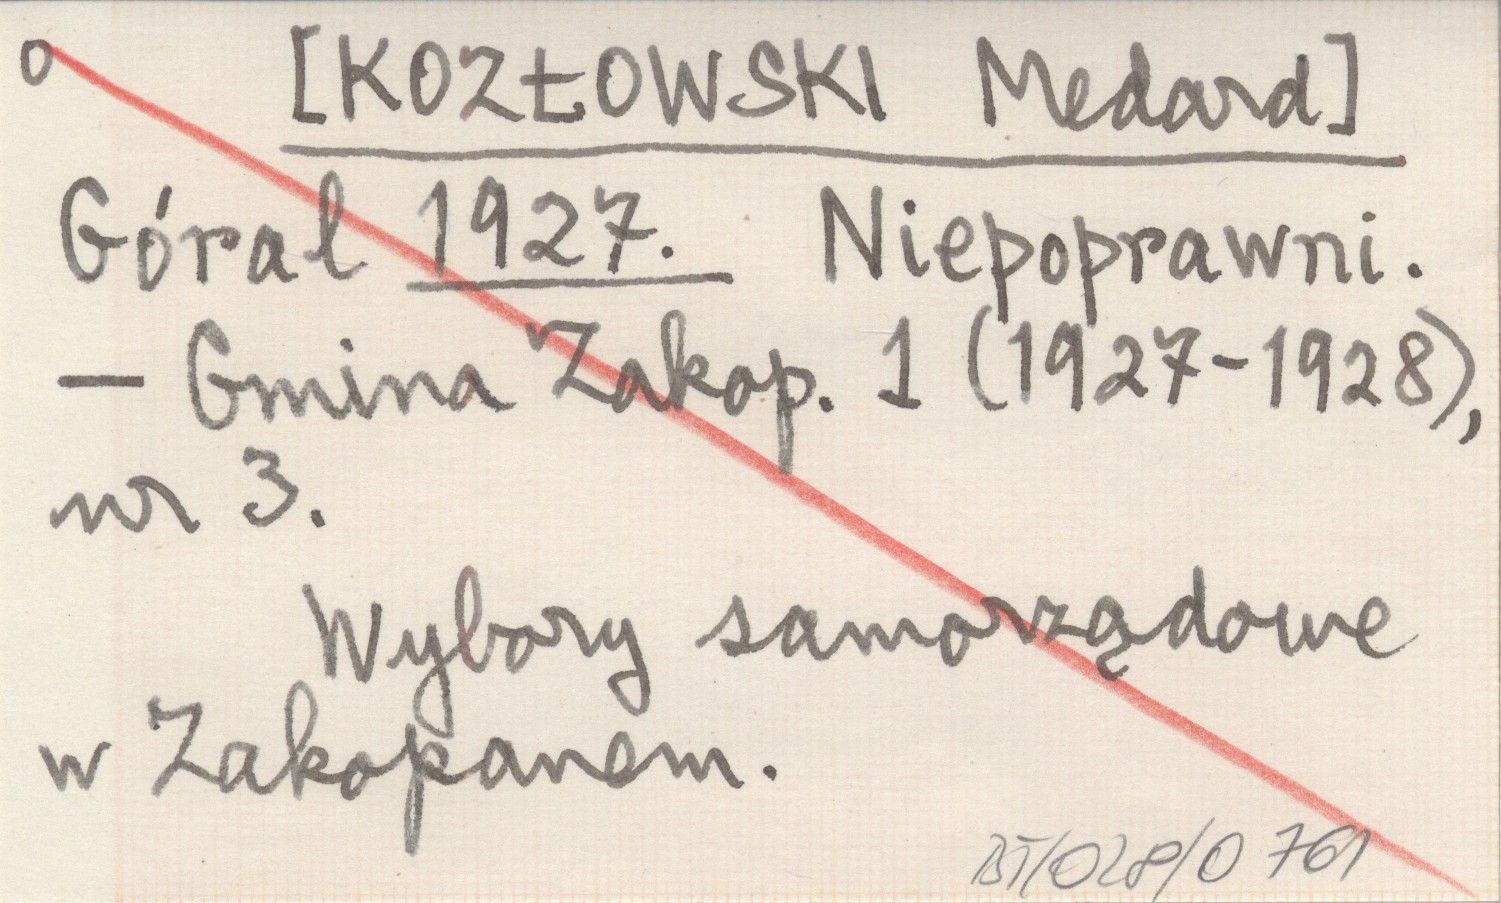 o [KOZŁOWSKI Medard]
Góral 1927. Niepoprawni.
— Gmina Zakop. 1 (1927-1928),
nr 3.
Wybory samorządowe
w Zakopanem.
BT/028/0 761